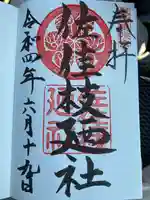 奉拝
佐佳枝廼社
令和四年六月十九日